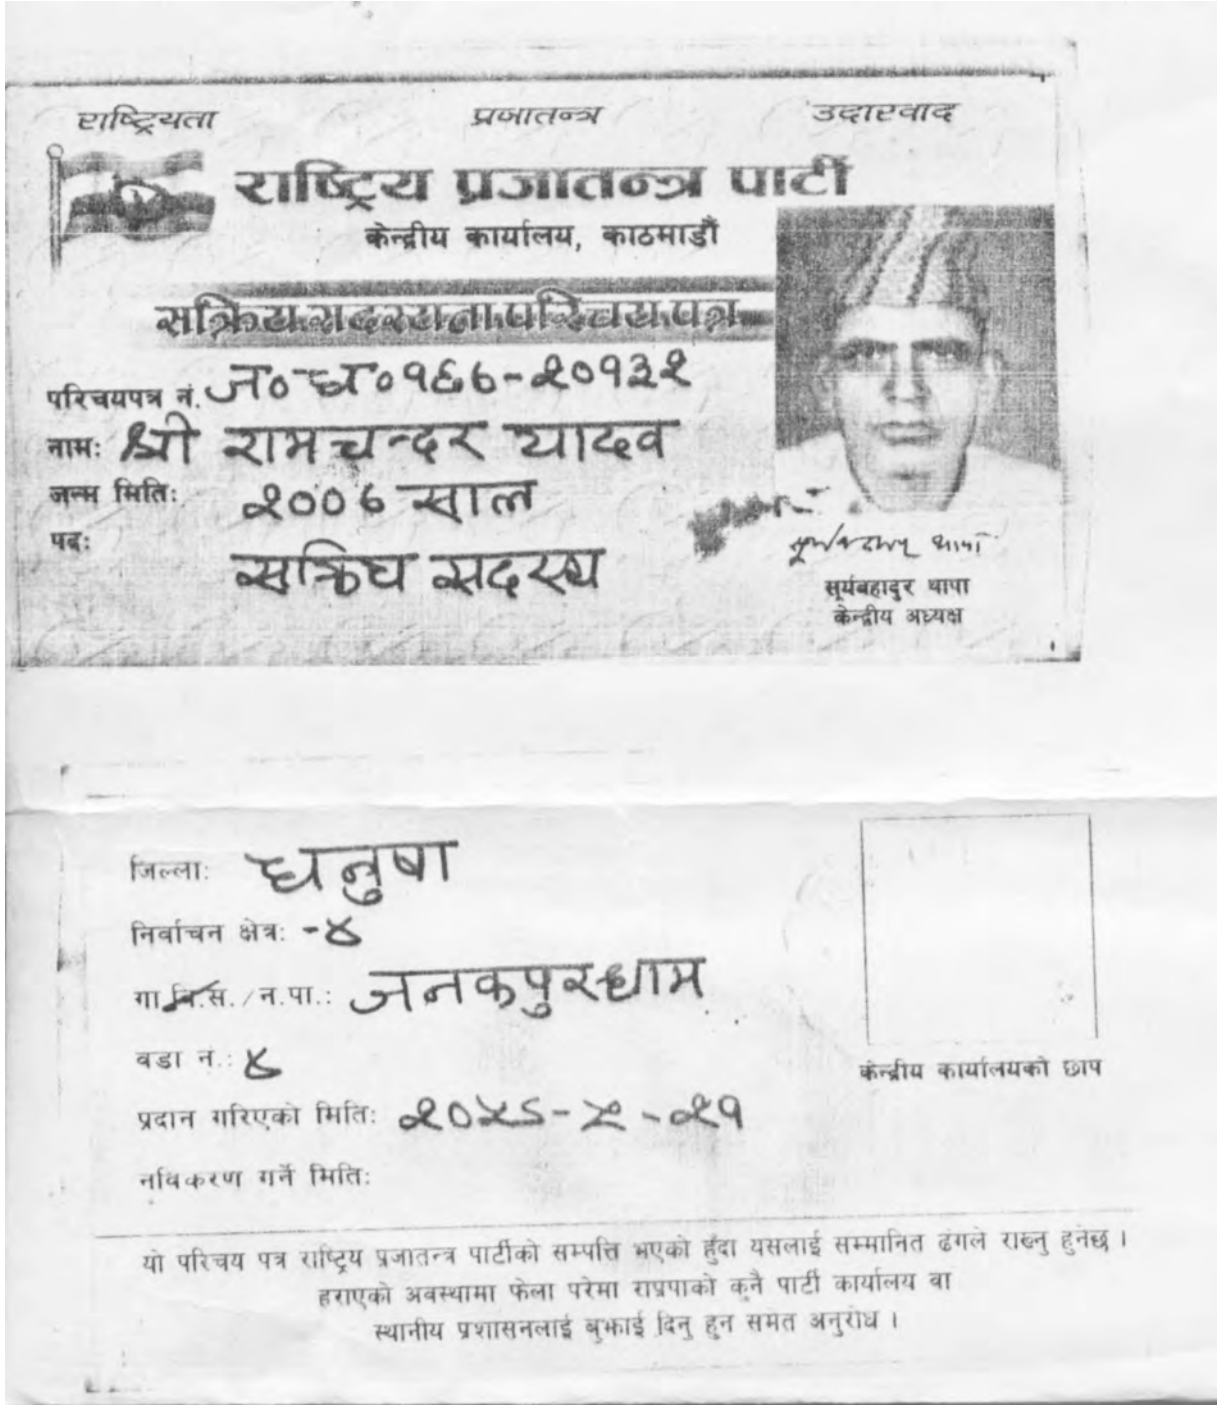 राष्ट्रियता प्रजातन्त्र उदारवाद
राष्ट्रिय प्रजातन्त्र पार्टी
केन्द्रीय कार्यालय, काठमाडौं
सक्रिय सदस्यता परिचय पत्र
परिचयपत्र नं. ज० ध० १६७-२०१३२
नाम: श्री रामचन्दर यादव
जन्म मिति: २००७ साल
पद: सक्रिय सदस्य
सूर्यबहादुर थापा
सूर्यबहादुर थापा
केन्द्रीय अध्यक्ष
जिल्ला: धनुषा
निर्वाचन क्षेत्र: -४
गा.वि.स./न.पा.: जनकपुरधाम
वडा नं.: ४
प्रदान गरिएको मिति: २०५८-५-२१
नविकरण गर्ने मिति:
केन्द्रीय कार्यालयको छाप
यो परिचय पत्र राष्ट्रिय प्रजातन्त्र पार्टीको सम्पत्ति भएको हुँदा यसलाई सम्मानित ढंगले राख्नु हुनेछ ।
हराएको अवस्थामा फेला परेमा राप्रपाको कुनै पार्टी कार्यालय वा
स्थानीय प्रशासनलाई बुझाई दिनु हुन समेत अनुरोध ।